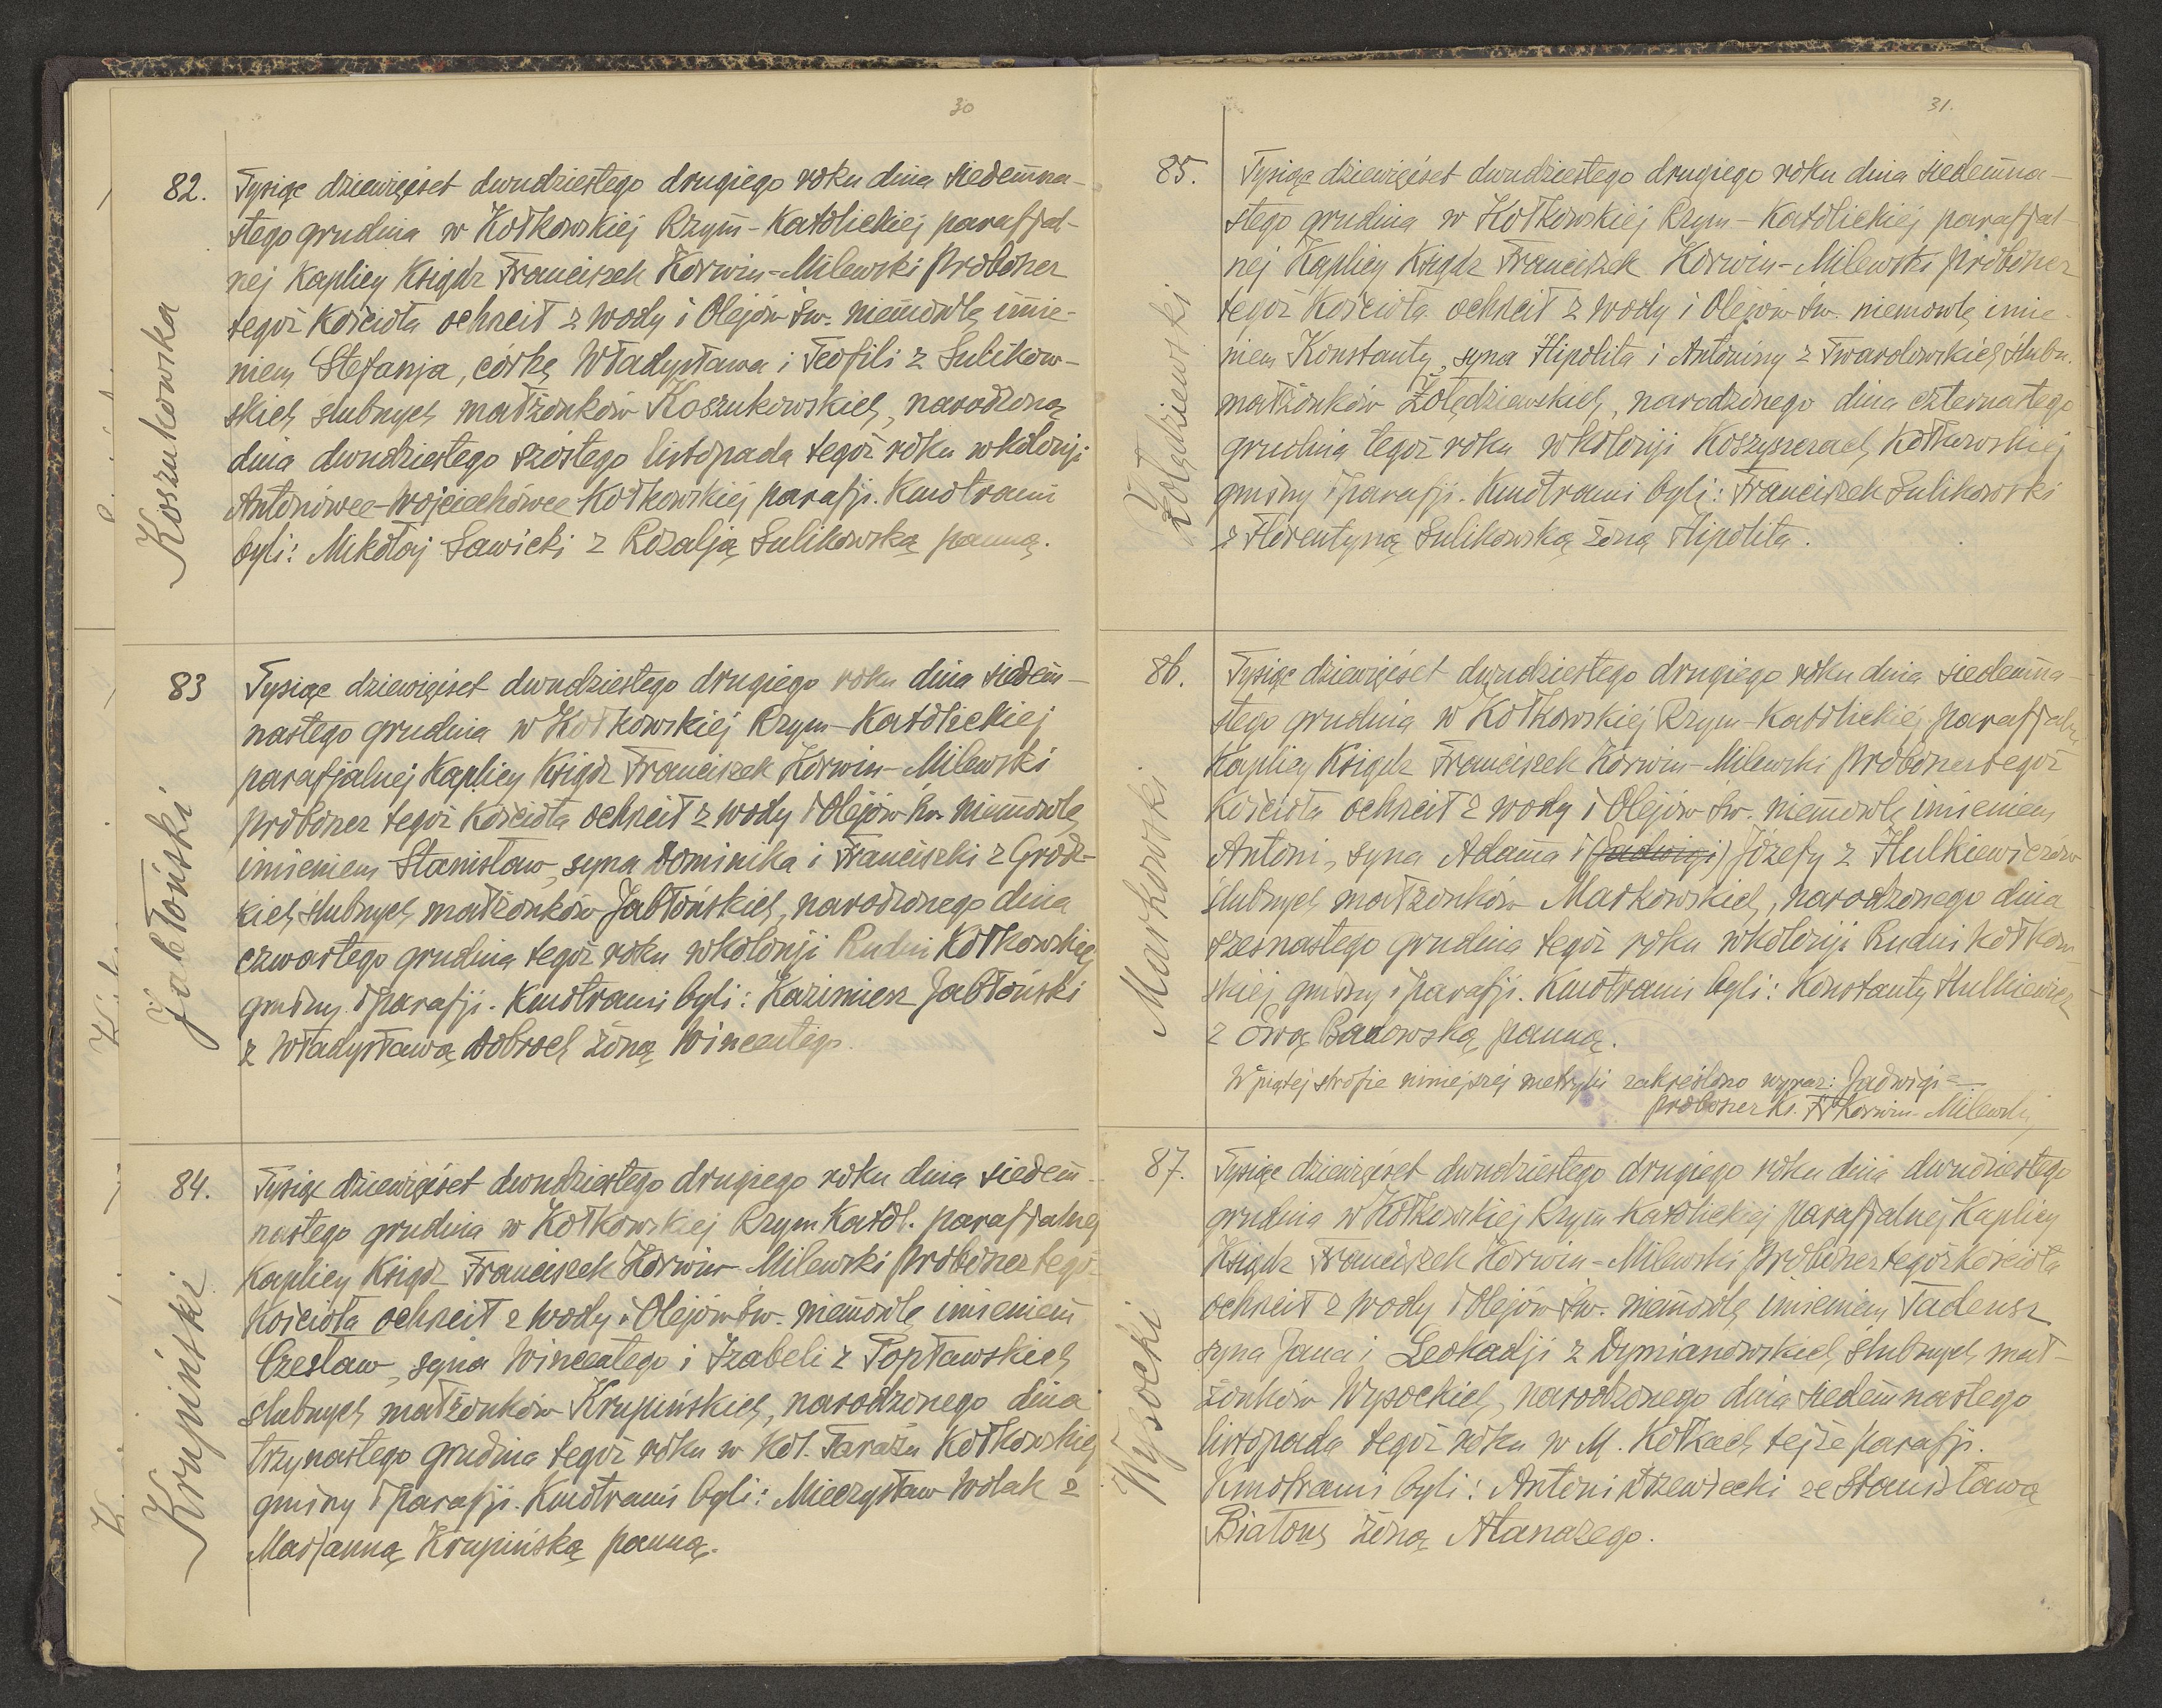 30
82.
Koszukowska
Tysiąc dziewięćset dwudziestego drugiego roku dnia siedemna-
stego grudnia w Kołkowskiej Rzym-Katolickiej parafjal-
nej Kaplicy Ksiądz Franciszek Korwin-Milewski Proboszcz
tegoż Kościoła ochrzcił z wody i Olejów św. niemowlę imie-
niem Stefanja, córkę Władysława i Teofili z Sulikow-
skich ślubnych małżonków Koszukowskich, narodzoną
dnia dwudziestego szóstego listopada tegoż roku w kolonji
Antonówce-Wojciechówce Kołkowskiej parafji. Kumotrami
byli: Mikołaj Sawicki z Rozalją Sulikowską panną.
83
Jabłoński
Tysiąc dziewięćset dwudziestego drugiego roku dnia siedem-
nastego grudnia w Kołkowskiej Rzym-Katolickiej
parafjalnej Kaplicy Ksiądz Franciszek Korwin-Milewski
proboszcz tegoż Kościoła ochrzcił z wody i Olejów św. niemowlę
imieniem Stanisław, syna Dominika i Franciszki z Grodz-
kich ślubnych małżonków Jabłońskich, narodzonego dnia
czwartego grudnia tegoż roku w kolonji Rudni Kołkowskiej
gminy i parafji. Kumotrami byli: Kazimierz Jabłoński
z Władysławą Dobroch żoną Wincentego.
84.
Krupiński
Tysiąc dziewięćset dwudziestego drugiego roku dnia siedem-
nastego grudnia w Kołkowskiej Rzym Katol. parafjalnej
Kaplicy Ksiądz Franciszek Korwin-Milewski Proboszcz tegoż
Kościoła ochrzcił z wody i Olejów św. niemowlę imieniem
Czesław, syna Wincentego i Izabeli z Popławskich
ślubnych małżonków Krupińskich, narodzonego dnia
trzynastego grudnia tegoż roku w Kol. Tarażu Kołkowskiej
gminy i parafji. Kumotrami byli: Mieczysław Wolak z
Marjanną Krupińską panną.
31.
85.
Żołędziewski
Tysiąc dziewięćset dwudziestego drugiego roku dnia siedemna-
stego grudnia w Kołkowskiej Rzym-Katolickiej parafjal-
nej Kaplicy Ksiądz Franciszek Korwin-Milewski proboszcz
tegoż Kościoła ochrzcił z wody i Olejów św. niemowlę imie-
niem Konstanty, syna Hipolita i Antoniny z Twardowskich ślubn.
małżonków Żołędziewskich, narodzonego dnia czternastego
grudnia tegoż roku w kolonji Koszyszczach Kołkowskiej
gminy i parafji. Kumotrami byli: Franciszek Sulikowski
z Florentyną Sulikowską żoną Hipolita.
86.
Markowski
Tysiąc dziewięćset dwudziestego drugiego roku dnia siedemna-
stego grudnia w Kołkowskiej Rzym-Katolickiej parafjalnej
Kaplicy Ksiądz Franciszek Korwin-Milewski Proboszcz tegoż
Kościoła ochrzcił z wody i Olejów św. niemowlę imieniem
Antoni, syna Adama i (Jadwigi) Józefy z Hulkiewiczów
ślubnych małżonków Markowskich, narodzonego dnia
szesnastego grudnia tegoż roku w kolonji Rudni Kołkow-
skiej gminy i parafji. Kumotrami byli: Konstanty Hulkiewicz
z Ewą Badowską panną.
W piątej strofie niniejszej metryki zakreślono wyraz: Jadwigi-
proboszcz Ks. Fr Korwin-Milewski
87.
Wysocki
Tysiąc dziewięćset dwudziestego drugiego roku dnia dwudziestego
grudnia w Kołkowskiej Rzym Katolickiej parafjalnej Kaplicy
Ksiądz Franciszek Korwin-Milewski Proboszcz tegoż Kościoła
ochrzcił z wody i Olejów św. niemowlę imieniem Tadeusz
syna Jana i Leokadji z Dymianowskich, ślubnych mał-
żonków Wysockich, narodzonego dnia siedemnastego
listopada tegoż roku w M. Kołkach tejże parafji.
Kumotrami byli: Antoni Drzewiecki ze Stanisławą
Białous żoną Atanazego.